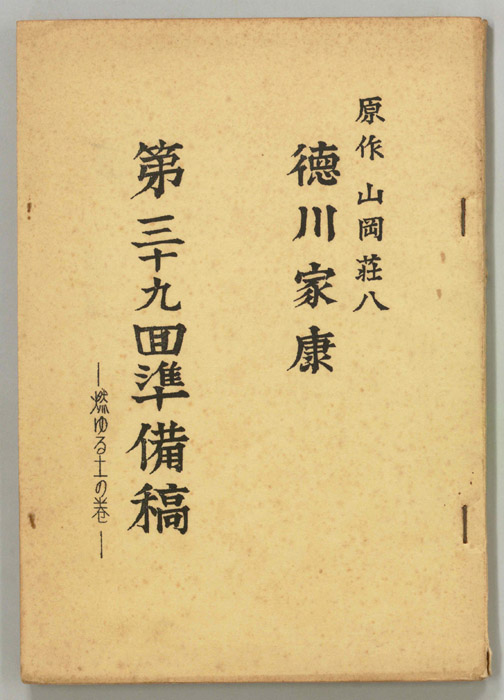 原作 山岡荘八
徳川家康
第三十九回準備稿
―燃ゆる土の巻―